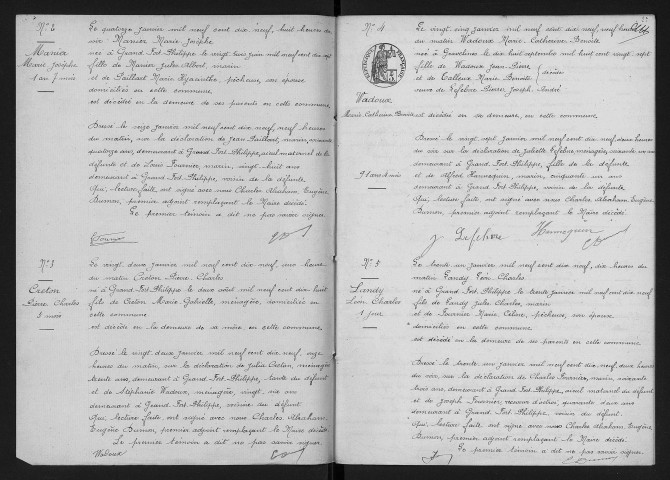 N° 2
Manier
Marie Josèphe
1 an 7 mois
Le quatorze janvier mil neuf cent dix neuf, huit heures du
soir Manier Marie Josèphe
née à Grand Fort Philippe le vingt deux juin mil neuf cent dix sept
fille de Manier Jules Albert, marin
et de Gaillard Marie Hyacinthe, pêcheuse, son épouse
domiciliés en cette commune
est décédée en la demeure de ses parents en cette commune
Dressé le seize janvier mil neuf cent dix neuf, neuf heures
du matin, sur la déclaration de Jean Gaillard, marin, soixante
quatorze ans, demeurant à Grand Fort Philippe, aïeul maternel de la
défunte et de Louis Fournier, marin, vingt huit ans
demeurant à Grand Fort Philippe, voisin de la défunte
Qui, lecture faite ont signé avec nous Charles Abraham Eugène
Burnon, premier adjoint remplaçant le Maire décédé.
Le premier témoin a dit ne pas savoir signer
N° 3
Creton
Pierre Charles
5 mois
Le vingt deux janvier mil neuf cent dix neuf, une heure
du matin Creton Pierre Charles
né à Grand Fort Philippe le deux août mil neuf cent dix huit
fils de Creton Marie Gabrielle, ménagère, domiciliée en
cette commune
est décédé en la demeure de sa mère en cette commune
Dressé le vingt deux janvier mil neuf cent dix neuf, onze
heures du matin, sur la déclaration de Julie Creton, ménagère
trente ans, demeurant à Grand Fort Philippe, tante du défunt
et de Stéphanie Wadoux, ménagère, vingt six ans
demeurant à Grand Fort Philippe, voisine du défunt.
Qui, lecture faite ont signé avec nous Charles Abraham
Eugène Burnon, premier adjoint remplaçant le Maire décédé.
Le premier témoin a dit ne pas savoir signer
Wadoux
N° 4
Wadoux
Marie Catherine Benoîte
Le vingt cinq janvier mil neuf cent dix neuf, neuf heures
du matin Wadoux Marie Catherine Benoîte
née à Gravelines le dix huit septembre mil huit cent vingt sept
fille de Wadoux Jean Pierre
et de Calleux Marie Benoîte
décédés
veuve de Lefebvre Pierre Joseph André
est décédée en sa demeure, en cette commune
Dressé le vingt sept janvier mil neuf cent dix neuf, deux heures
du soir sur la déclaration de Juliette Lefebvre ménagère, soixante un ans
demeurant à Grand Fort Philippe, fille de la défunte
et de Alfred Hannequin, marin, cinquante un ans
demeurant à Grand Fort Philippe, voisin de la défunte
Qui, lecture faite ont signé avec nous Charles Abraham Eugène
Burnon, premier adjoint remplaçant le Maire décédé
J Lefebvre Hannequin
N° 5
Landy
Léon Charles
1 jour
Le trente un janvier mil neuf cent dix neuf, dix heures du
matin Landy Léon Charles
né à Grand Fort Philippe le trente janvier mil neuf cent dix neuf
fils de Landy Jules Charles, marin
et de Fournier Marie Céline, pêcheuse, son épouse
domiciliés en cette commune
est décédé en la demeure de ses parents en cette commune
Dressé le trente un janvier mil neuf cent dix neuf, deux heures
du soir, sur la déclaration de Charles Fournier, marin, soixante
trois ans, demeurant à Grand Fort Philippe, aïeul maternel du défunt
et de Joseph Fournier, quarante deux ans
demeurant à Grand Fort Philippe, voisin du défunt.
Qui, lecture faite, ont signé avec nous Charles Abraham Eugène
Burnon, premier adjoint remplaçant le Maire décédé
Le premier témoin a dit ne pas savoir signer